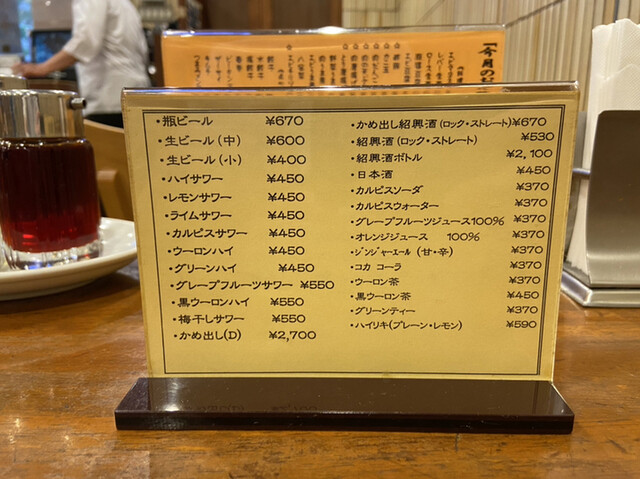 「今月の
・瓶ビール ¥670
・生ビール(中) ¥600
・生ビール(小) ¥400
・ハイサワー ¥450
・レモンサワー ¥450
・ライムサワー ¥450
・カルピスサワー ¥450
・ウーロンハイ ¥450
・グリーンハイ ¥450
・グレープフルーツサワー ¥550
・黒ウーロンハイ ¥550
・梅干しサワー ¥550
・かめ出し(D) ¥2,700
・かめ出し紹興酒(ロック・ストレート) ¥670
・紹興酒(ロック・ストレート) ¥530
・紹興酒ボトル ¥2,100
・日本酒 ¥450
・カルピスソーダ ¥370
・カルピスウォーター ¥370
・グレープフルーツジュース100% ¥370
・オレンジジュース 100% ¥370
・ジンジャーエール(甘・辛) ¥370
・コカ コーラ ¥370
・ウーロン茶 ¥370
・黒ウーロン茶 ¥450
・グリーンティー ¥370
・ハイリキ(プレーン・レモン) ¥590